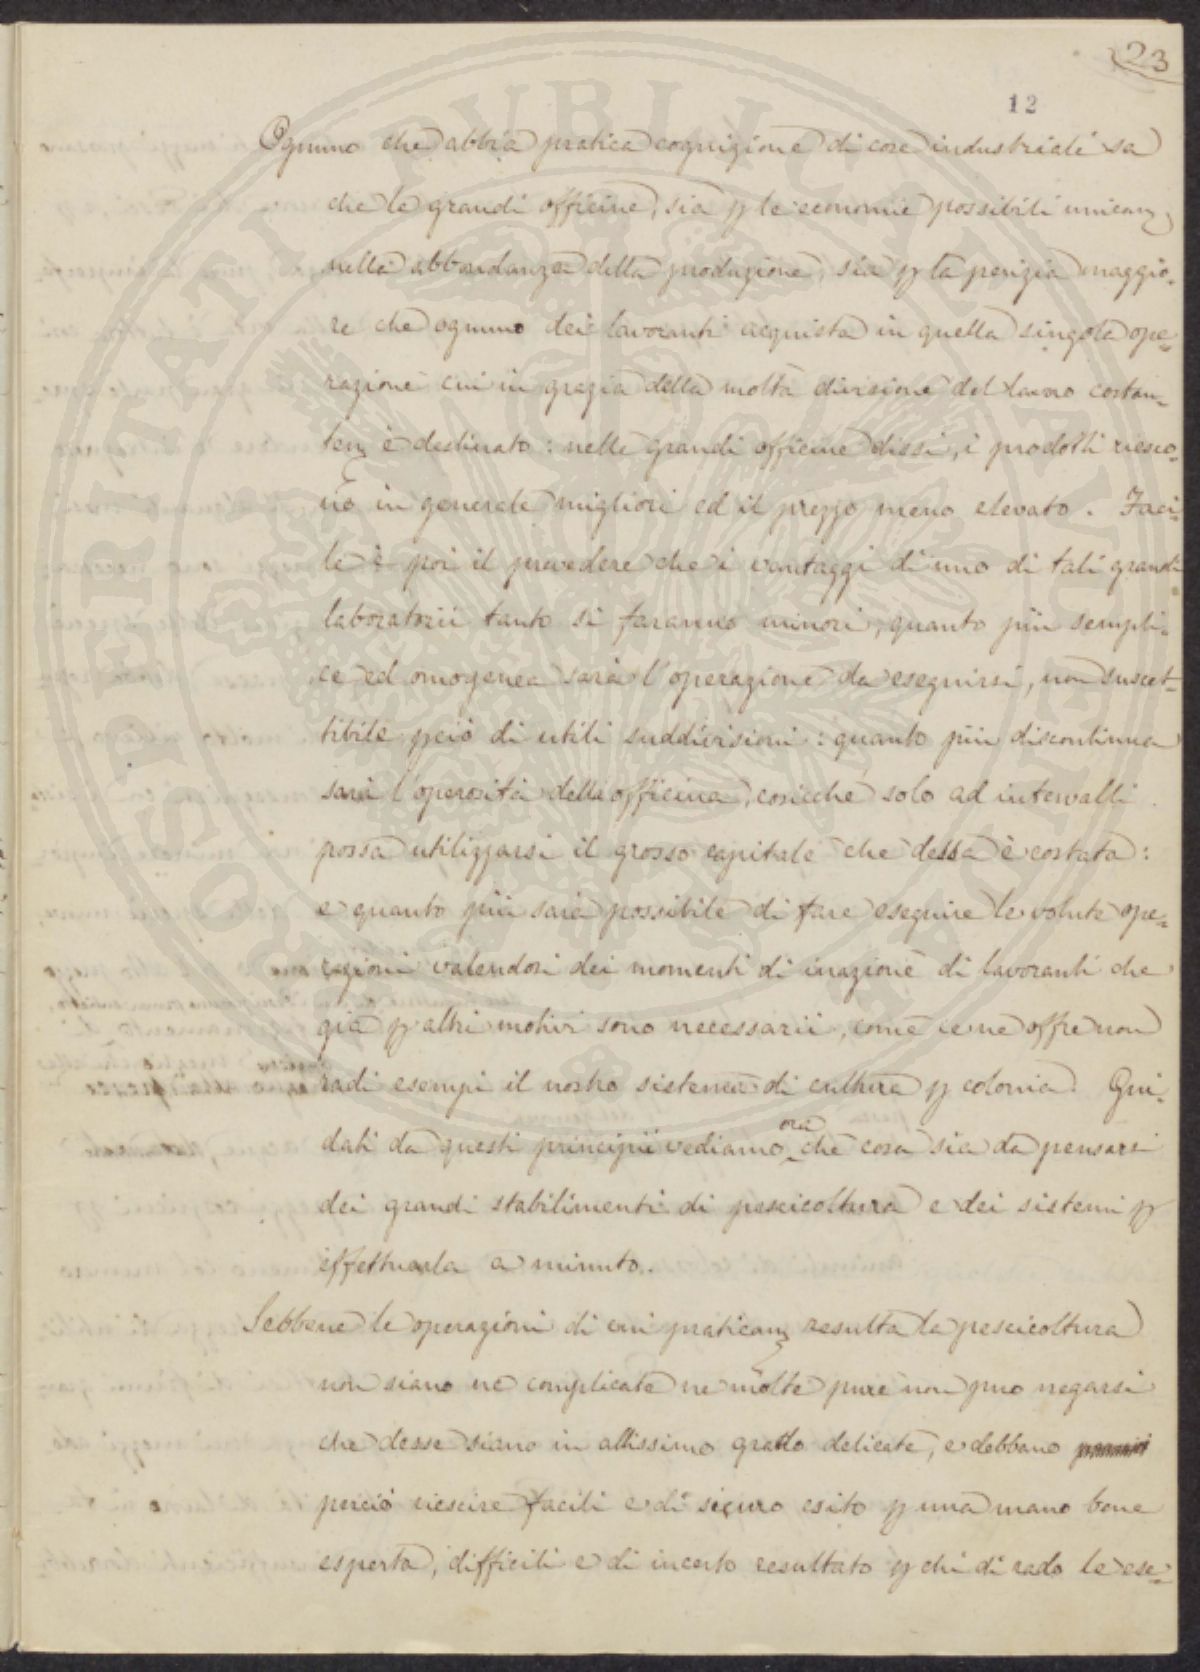 23
12
Ognuno che abbia pratica cognizione di cose industriali sa
che le grandi officine, sia p le economie possibili unicam
nella abbondanza della produzione, sia p la perizia maggio-
re che ognuno dei lavoranti acquista in quella singola ope-
razione cui in grazia della molta divisione del lavoro costan-
tem è destinato: nelle grandi officine dissi, i prodotti riesco-
no in generale migliori ed il prezzo meno elevato. Faci-
le è poi il prevedere che i vantaggi di uno di tali grandi
laboratorii tanto si faranno minori, quanto più sempli-
ce ed omogenea sarà l'operazione da eseguirsi, non suscet-
tibile pciò di utili suddivisioni: quanto più discontinua
sarà l'operosità della officina, cosicchè solo ad intervalli
possa utilizzarsi il grosso capitale che dessa è costata:
e quanto più sarà possibile di fare eseguire le volute ope-
razioni valendosi dei momenti di inazione di lavoranti che
già p altri motivi sono necessarii, come ce ne offre non
radi esempi il nostro sistema di cultura p colonia. Gui-
dati da questi principii vediamo ora che cosa sia da pensarsi
dei grandi stabilimenti di pescicoltura e dei sistemi p
effettuarla a minuto.
Sebbene le operazioni di cui praticam resulta la pescicoltura
non siano nè complicate nè molte pure non può negarsi
che desse siano in altissimo grado delicate, e debbano
perciò riescire facili e di sicuro esito p una mano bene
esperta, difficili e di incerto resultato p chi di rado le ese-
PROSPERITATI PVBLICAE AVGENDAE